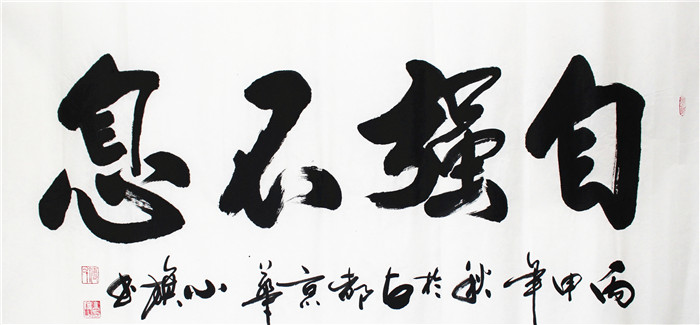 自强不息
丙申年秋於古都京華小旗书